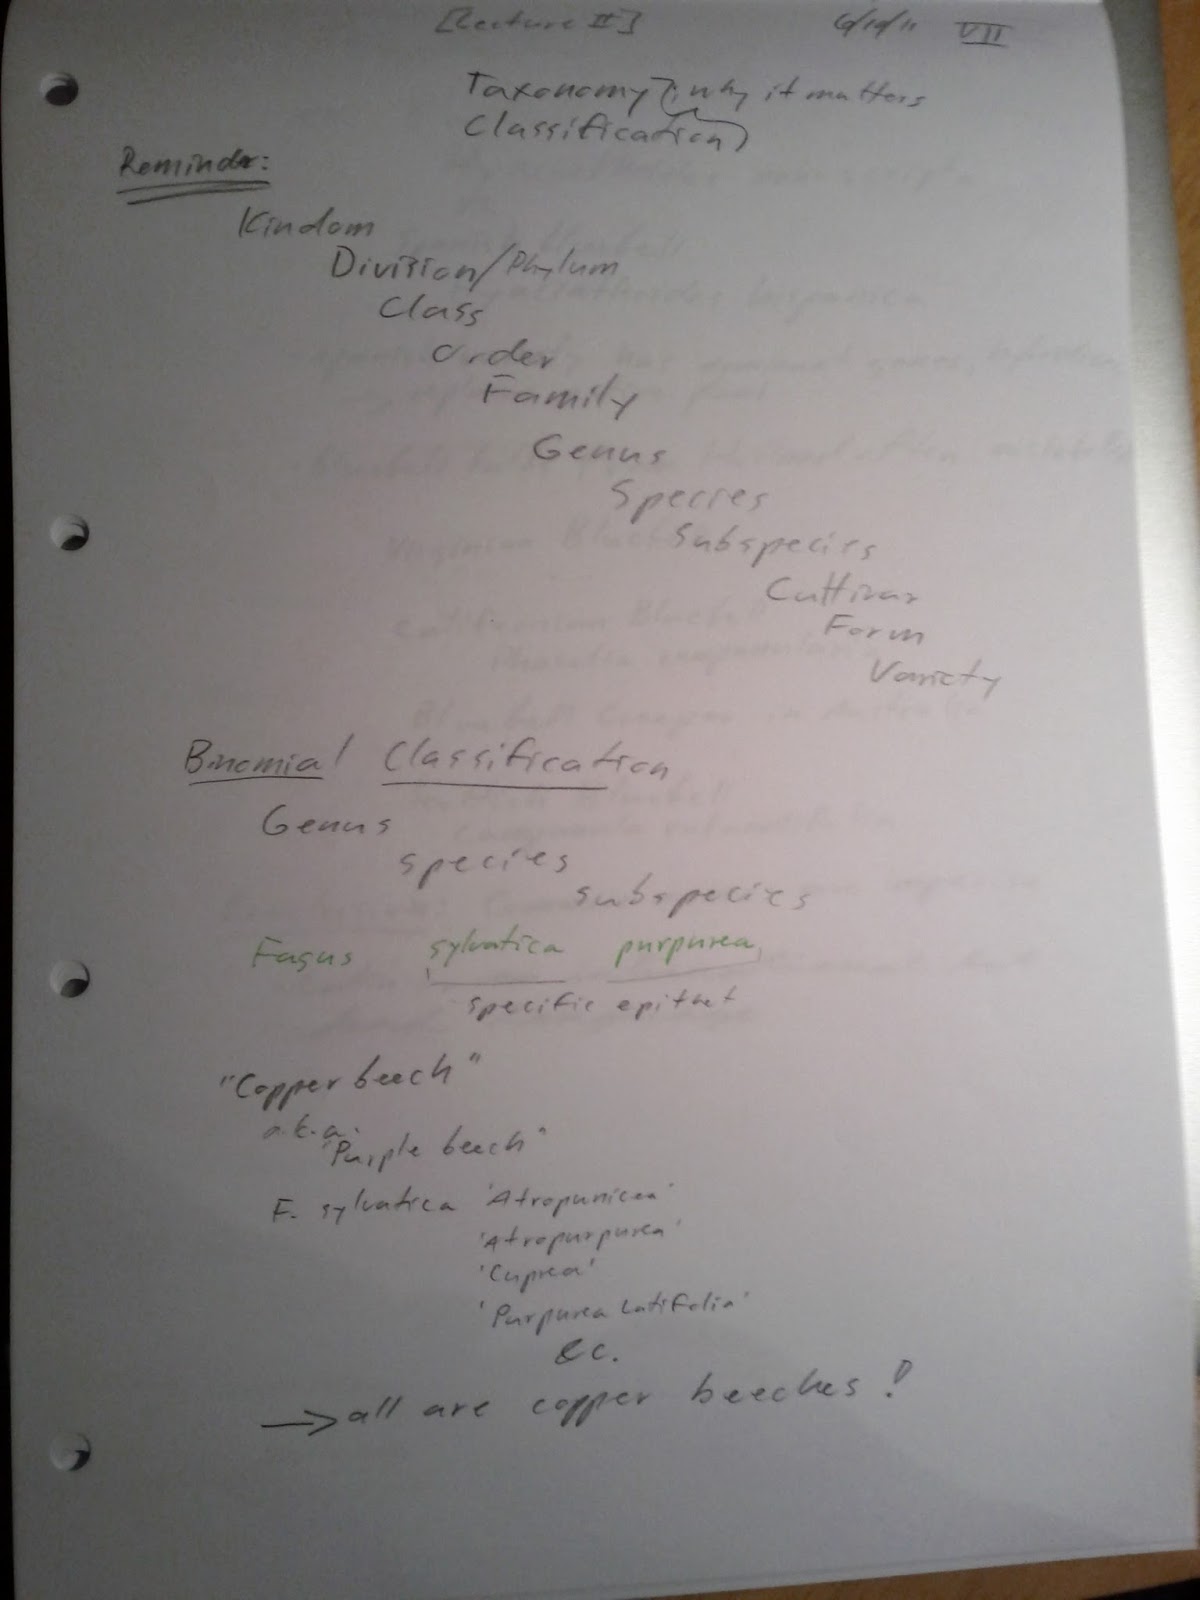 [Lecture II] 6/10/11 VII
Taxonomy : why it matters
Classification
Reminder:
Kindom
Division/Phylum
Class
Order
Family
Genus
Species
Subspecies
Cultivar
Form
Variety
Binomial Classification
Genus
species
subspecies
Fagus sylvatica purpurea
specific epithet
"Copper beech"
a.k.a.
"Purple beech"
F. sylvatica 'Atropunicea'
'Atropurpurea'
'Cuprea'
'Purpurea Latifolia'
&c.
→ all are copper beeches!